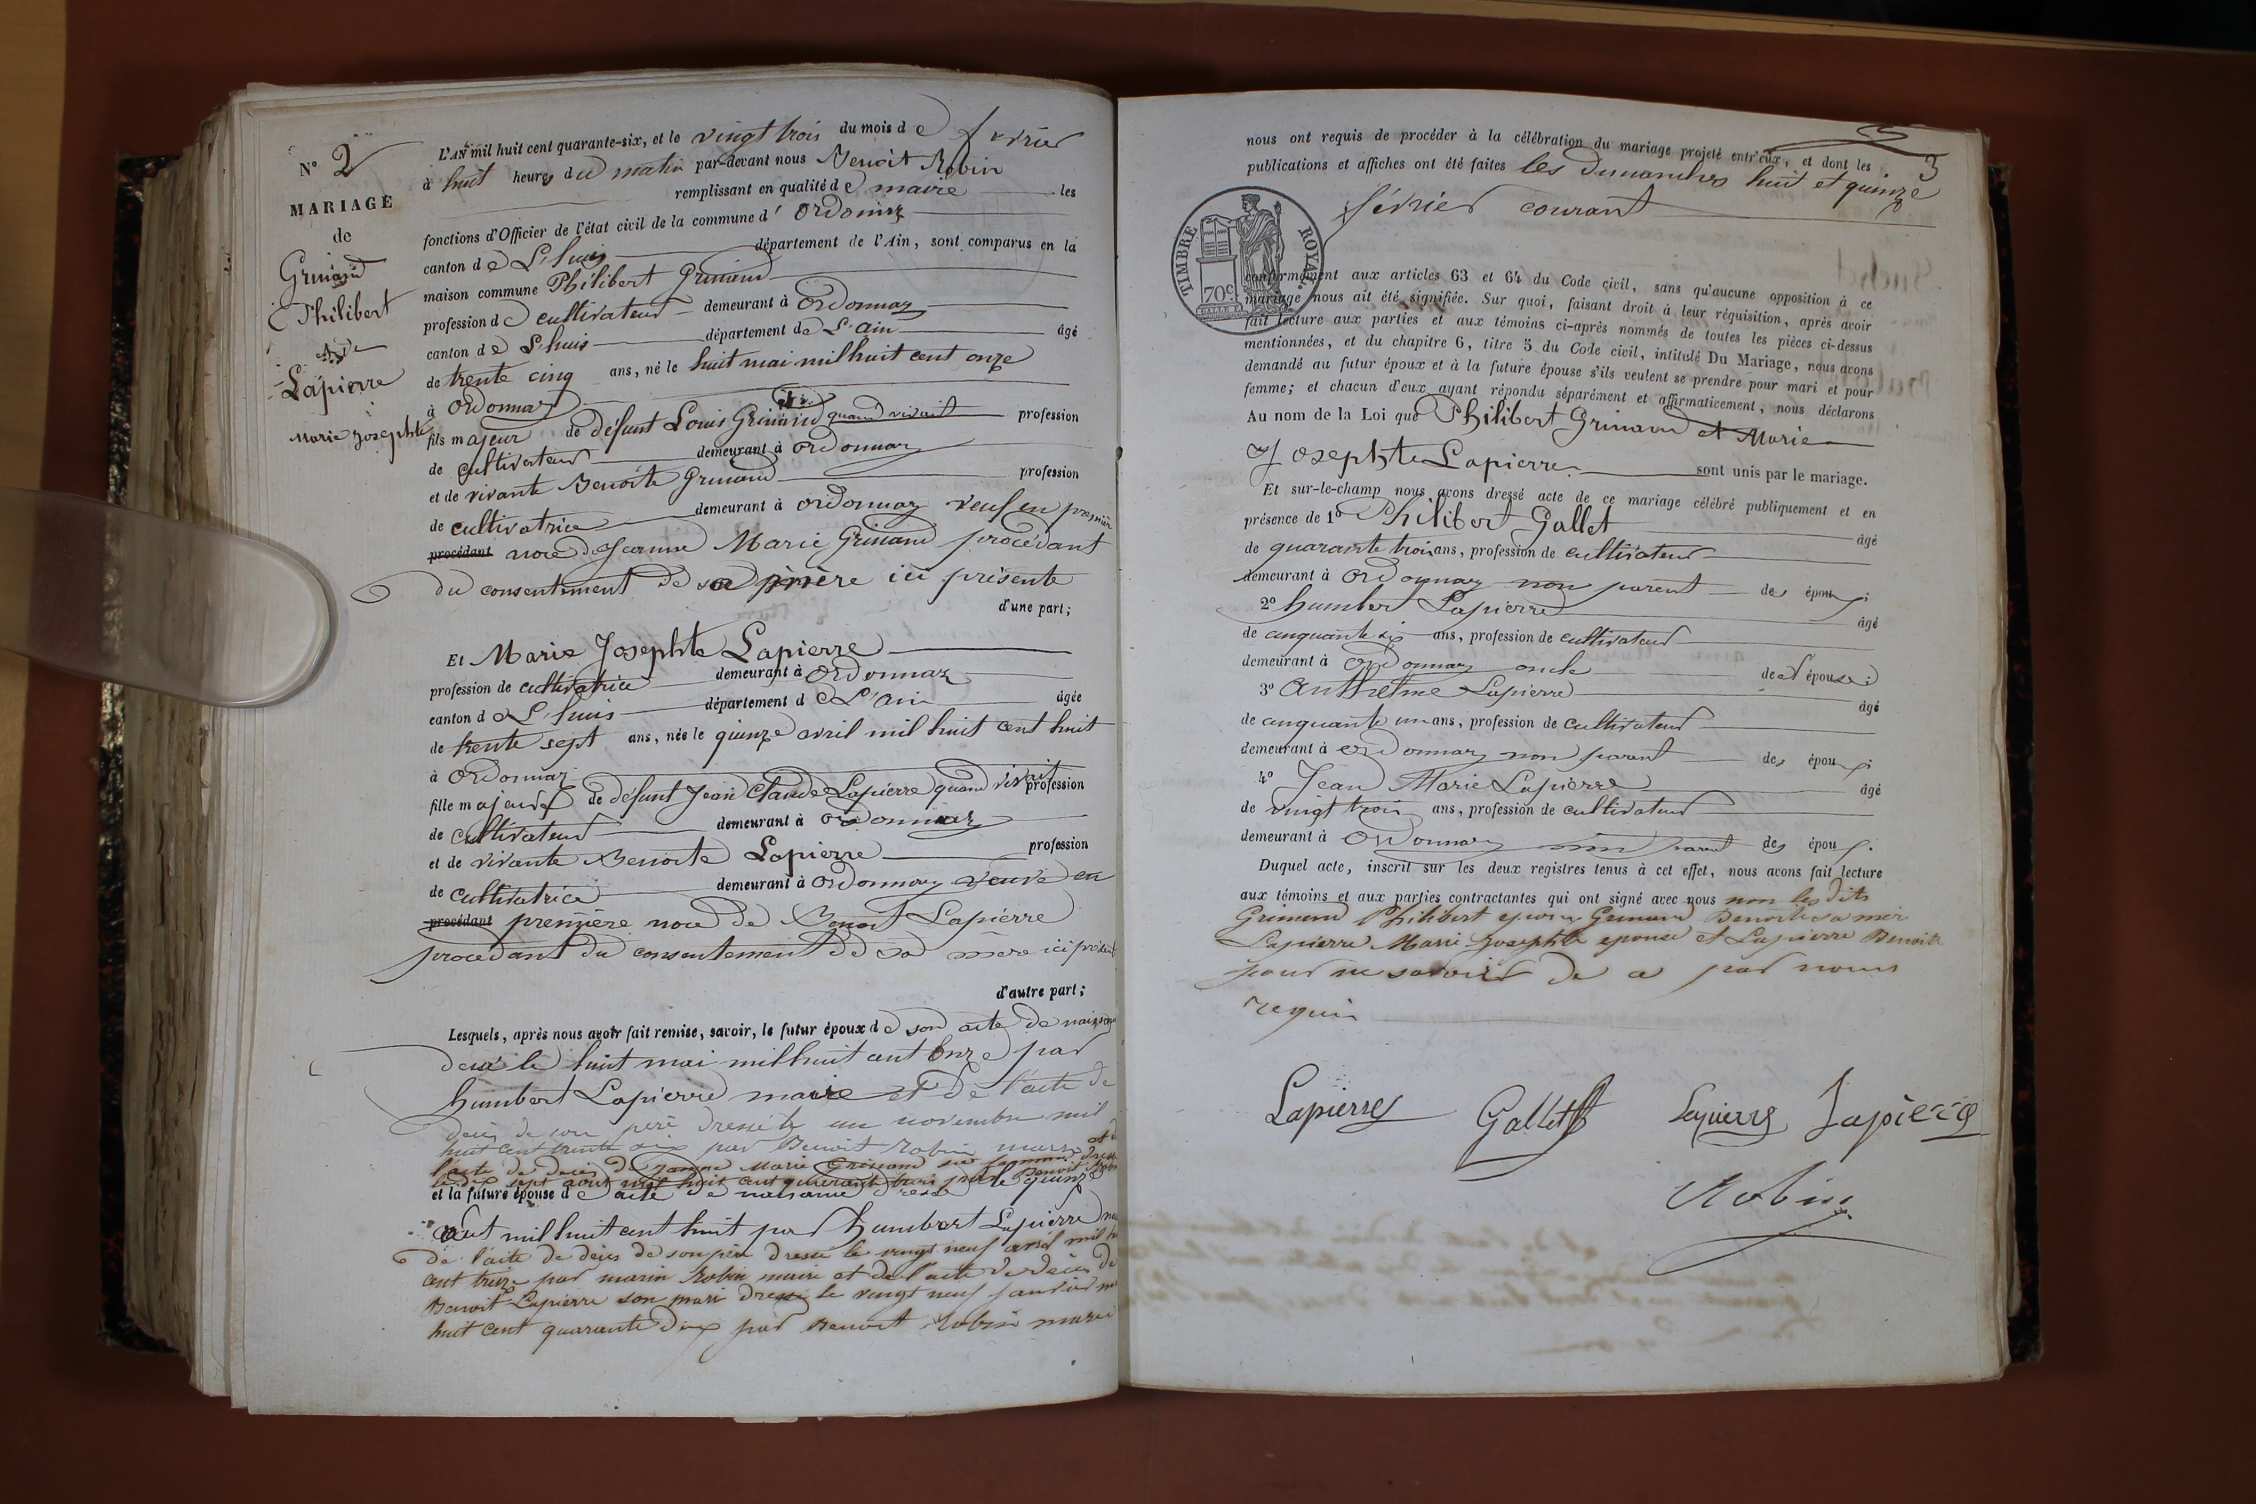 N° 2
MARIAGE
de
Grinand
Philibert
et de
Lapierre
Marie Josephte
L'AN mil huit cent quarante-six, et le vingt trois du mois de fevrier
à huit heures du matin par-devant nous Benoit Robin
remplissant en qualité de maire les
fonctions d'Officier de l'état civil de la commune d' Ordonnaz
canton de L'huis département de l'Ain, sont comparus en la
maison commune Philibert Grinand
profession de cultivateur demeurant à Ordonnaz
canton de L'huis département de L'ain âgé
de trente cinq ans, né le huit mai mil huit cent onze
à Ordonnaz
fils majeur de défunt Louis Grinand quand vivait profession
de cultivateur demeurant à Ordonnaz
et de vivante Benoite Grinand profession
de cultivatrice demeurant à Ordonnaz veuf en premier
procédant noce de Jeanne Marie Grinand procédant
du consentement de sa mère ici présente
d'une part;
Et Marie Josephte Lapierre
profession de cultivatrice demeurant à Ordonnaz
canton de L'huis département de L'ain âgée
de trente sept ans, née le quinze avril mil huit cent huit
à Ordonnaz
fille majeure de défunt Jean Claude Lapierre quand vivait profession
de cultivateur demeurant à Ordonnaz
et de vivante Benoite Lapierre profession
de cultivatrice demeurant à Ordonnaz veuve en
procédant première noce de Benoit Lapierre
procédant du consentement de sa mère ici présente
d'autre part;
Lesquels, après nous avoir fait remise, savoir, le futur époux de son acte de naissance
dressé le huit mai mil huit cent onze par
humbert Lapierre maire et de l'acte de
décès de son père dressé le un novembre mil
huit cent trente six par Benoit Robin maire et de
l'acte de decès de Jeanne Marie Grinand sa femme dressé
le dix sept août mil huit cent quarante trois par Benoit Robin
et la future épouse de acte de naissance dressé le quinze
avril mil huit cent huit par humbert Lapierre
de l'acte de décès de son père dressé le vingt neuf avril mil huit
cent treize par marin Robin maire et de l'acte de décès de
Benoit Lapierre son mari dressé le vingt neuf janvier mil
huit cent quarante deux par Benoit Robin maire
3
nous ont requis de procéder à la célébration du mariage projeté entr'eux, et dont les
publications et affiches ont été faites les dimanches huit et quinze
février courant
TIMBRE ROYAL
70 c
conformément aux articles 63 et 64 du Code civil, sans qu'aucune opposition à ce
mariage nous ait été signifiée. Sur quoi, faisant droit à leur réquisition, après avoir
fait lecture aux parties et aux témoins ci-après nommés de toutes les pièces ci-dessus
mentionnées, et du chapitre 6, titre 5 du Code civil, intitulé Du Mariage, nous avons
demandé au futur époux et à la future épouse s'ils veulent se prendre pour mari et pour
femme; et chacun d'eux ayant répondu séparément et affirmaticement, nous déclarons
Au nom de la Loi que Philibert Grinand et Marie
Josephte Lapierre sont unis par le mariage.
Et sur-le-champ nous avons dressé acte de ce mariage célébré publiquement et en
présence de 1° Philibert Gallet âgé
de quarante trois ans, profession de cultivateur
demeurant à Ordonnaz non parent des époux;
2° humbert Lapierre âgé
de cinquante six ans, profession de cultivateur
demeurant à Ordonnaz oncle de l'épouse;
3° Anthelme Lapierre âgé
de cinquante un ans, profession de cultivateur
demeurant à Ordonnaz non parent des époux;
4° Jean Marie Lapierre âgé
de vingt trois ans, profession de cultivateur
demeurant à Ordonnaz non parent des époux.
Duquel acte, inscrit sur les deux registres tenus à cet effet, nous avons fait lecture
aux témoins et aux parties contractantes qui ont signé avec nous non les dits
Grinand Philibert epoux Grinand Benoite sa mère
Lapierre Marie Josephte epouse et Lapierre Benoite
pour ne savoir de ce par nous
requis
Lapierre Gallet Lapierre Lapierre
Robin